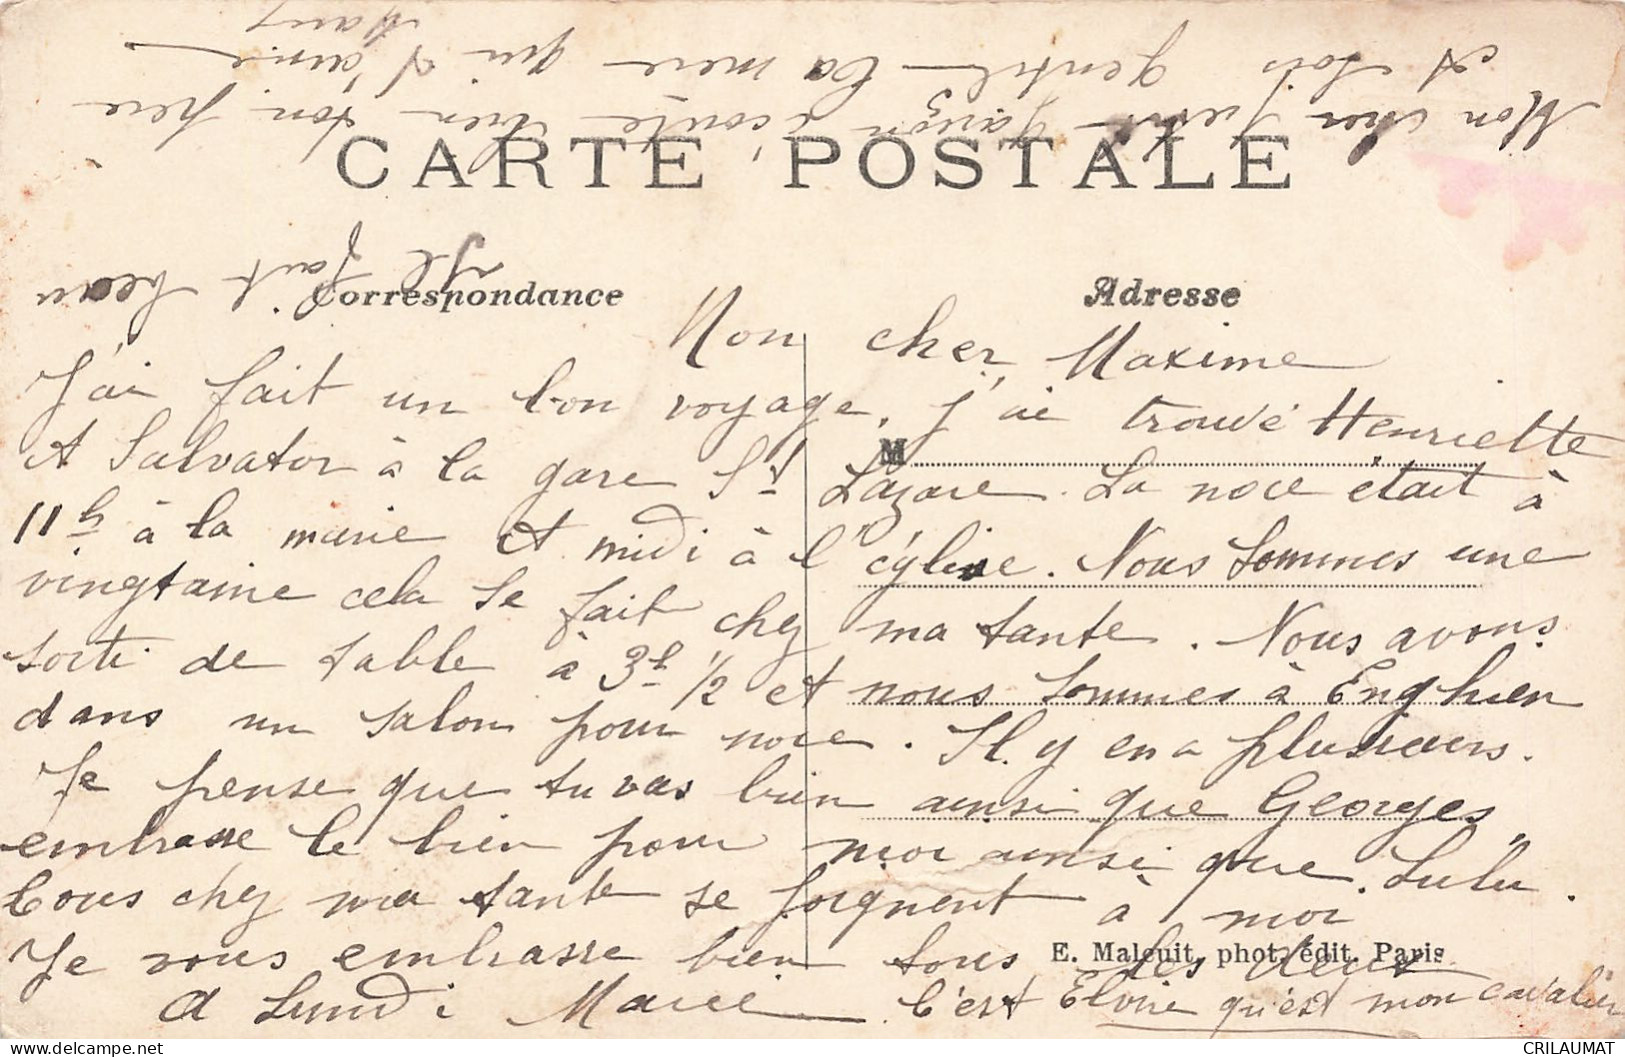 Mon cher petit garçon écoute bien ton père
et sois gentil ta mère qui t'aime
CARTE POSTALE
Il fait beau
Correspondance
Adresse
Mon cher Maxime
J'ai fait un bon voyage. J'ai trouvé Henriette
M
et Salvator à la gare St Lazare. La noce était à
11h à la mairie et midi à l'église. Nous sommes une
vingtaine cela se fait chez ma tante. Nous avons
sorti de table à 3h 1/2 et nous sommes à Enghien
dans un salon pour noce. Il y en a plusieurs.
Je pense que tu vas bien ainsi que Georges,
embrasse le bien pour moi ainsi que Lulu.
Tous chez ma tante se joignent à moi
Je vous embrasse bien tous les deux
E. Malcuit, phot. édit. Paris
A Lundi Marie C'est qu'est mon cavalier
CRILAUMAT